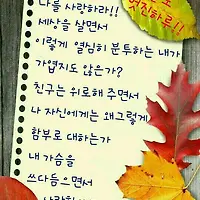 나를 사랑하라!!
세상을 살면서
이렇게 열심히 분투하는 내가
가엽지도 않은가?
친구는 위로해 주면서
나 자신에게는 왜그렇게
함부로 대하는가
내 가슴을
쓰다듬으면서